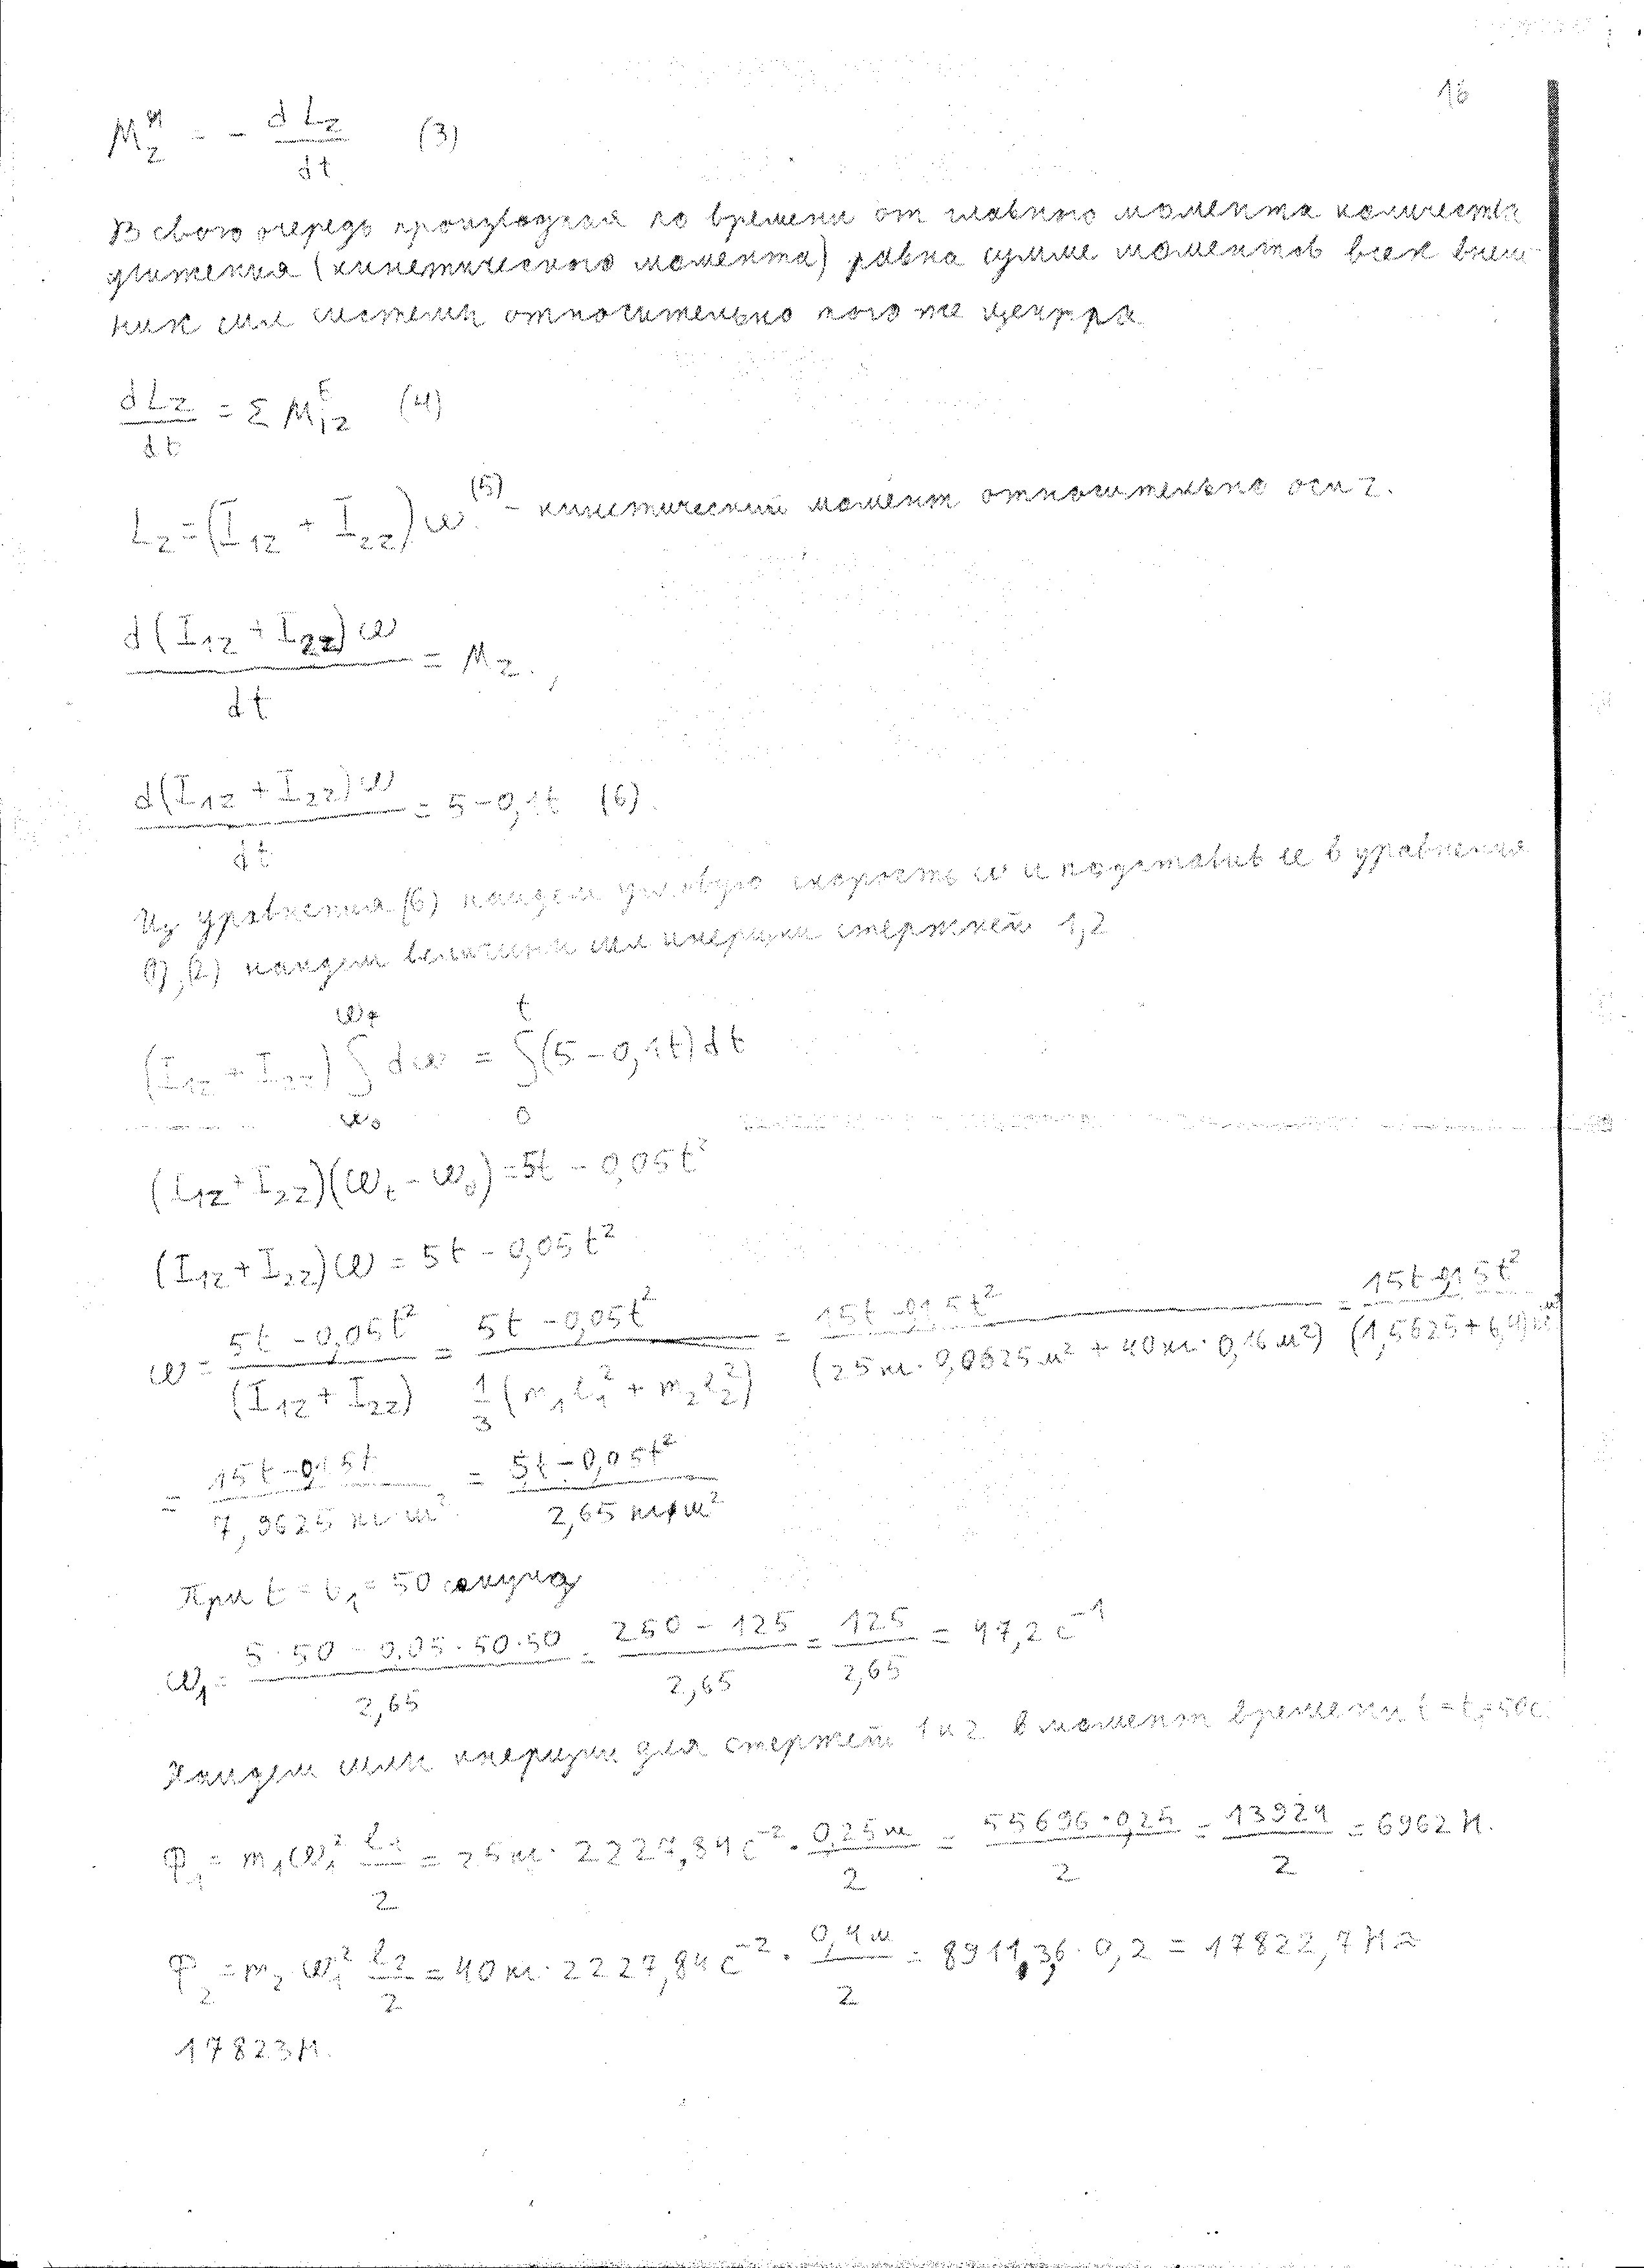 16
M_z^и = - dL_z/dt (3)
В свою очередь производная по времени от главного момента количеств
движения (кинетического момента) равна сумме моментов всех внеш-
них сил системы относительно того же центра
dL_z/dt = Σ M_iz^E (4)
L_z = (I_1z + I_2z) ω. (5) - кинетический момент относительно оси z.
d(I_1z + I_2z) ω/dt = M_z.,
d(I_1z + I_2z) ω/dt = 5 - 0,1t (6).
Из уравнения (6) найдем угловую скорость ω и подставив ее в уравнения
(1), (2) найдем величины сил инерции стержней 1,2
(I_1z + I_2z) ∫_{ω_0}^{ω_t} dω = ∫_0^t (5 - 0,1t) dt
(I_1z + I_2z)(ω_t - ω_0) = 5t - 0,05t²
(I_1z + I_2z) ω = 5t - 0,05t²
ω = (5t - 0,05t²)/(I_1z + I_2z) = (5t - 0,05t²)/(1/3 (m_1 l_1² + m_2 l_2²)) = (15t - 0,15t²)/(25кг · 0,0625м² + 40кг · 0,16м²) = (15t - 0,15t²)/(1,5625 + 6,4)
= (15t - 0,15t)/(7,9625 кг·м²) = (5t - 0,05t²)/(2,65 кг·м²)
При t = t_1 = 50 секунд
ω_1 = (5·50 - 0,05·50·50)/2,65 = (250 - 125)/2,65 = 125/2,65 = 47,2 с⁻¹
Найдем силы инерции для стержней 1 и 2 в момент времени t = t_1 = 50с.
Φ_1 = m_1 ω_1² l_1/2 = 25кг · 2227,84 с⁻² · 0,25м/2 = 55696·0,25/2 = 13924/2 = 6962 Н.
Φ_2 = m_2 ω_1² l_2/2 = 40кг · 2227,84 с⁻² · 0,4м/2 = 89113,6 · 0,2 = 17822,7 Н ≈
17823 Н.